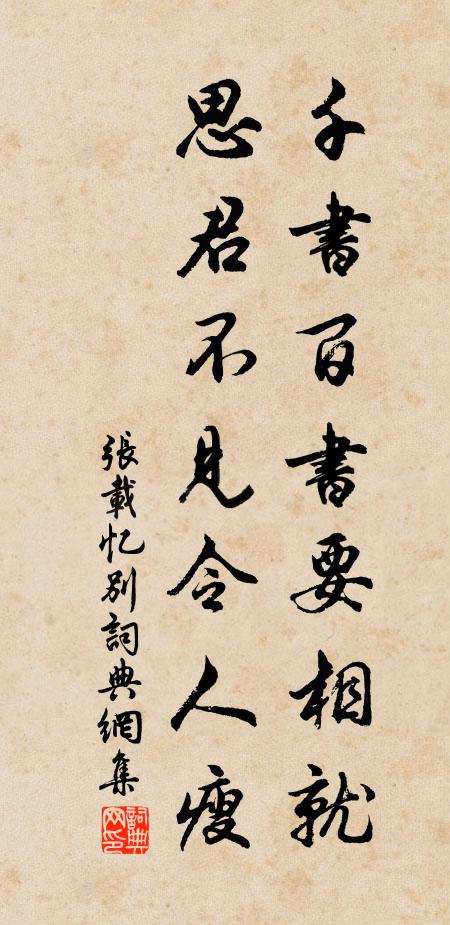 千書百書要相就
思君不見令人瘦
張載忆别詞典網集
詞典网印